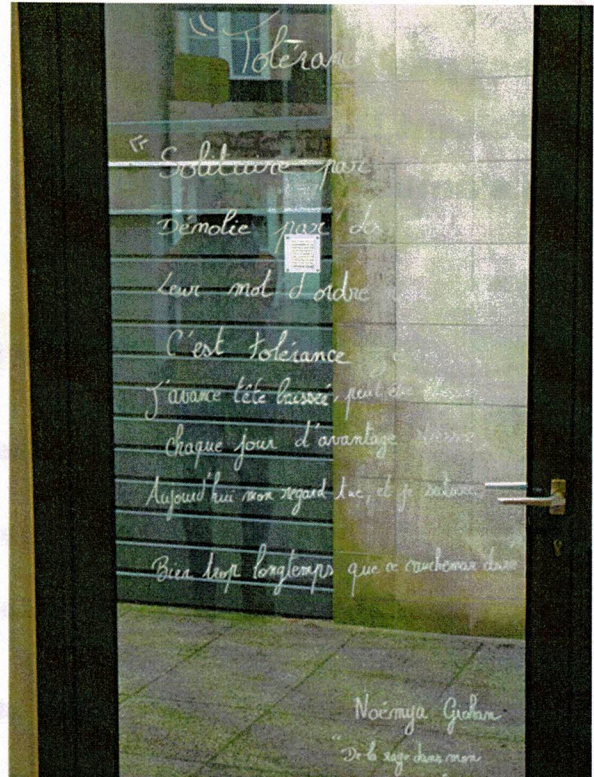 " Toléranc
« Solitaire par
Démolie par des
Leur mot d'ordre
C'est tolérance
J'avance tête baissée, peut être
Chaque jour d'avantage
Aujourd'hui mon regard tue, et je sature,
Bien trop longtemps que ce cauchemar dure
Noémya Grohan
"De la rage dans mon